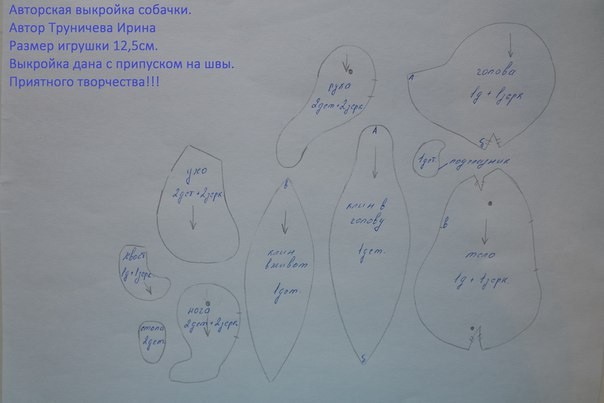 Авторская выкройка собачки.
Автор Труничева Ирина
Размер игрушки 12,5см.
Выкройка дана с припуском на швы.
Приятного творчества!!!
голова
1д + 1зерк
А
рука
2дет+2зерк
А
1дет
подхвостник
ухо
2дет+2зерк
В
клин в
голову
1дет.
В
тело
1д + 1зерк.
клин
в живот
1дет.
хвост
1д+1зерк
нога
2дет+2зерк
стопа
2дет